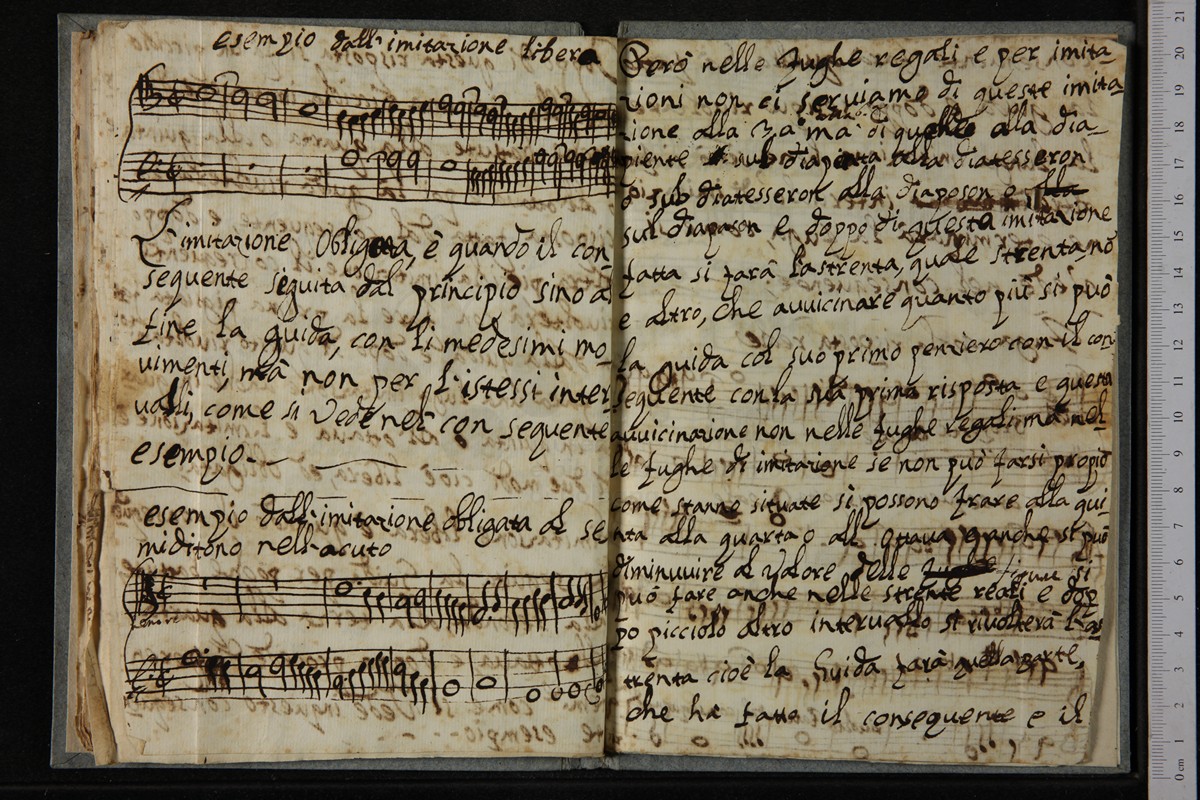 esempio dall'imitazione libera
L'imitazione Obligata, è quando il con
seguente seguita dal principio sino al
fine la guida, con li medesimi mo
vimenti, mà non per l'istessi inter
valli, come si Vede nel con seguente
esempio.
esempio dall'imitazione obligata al se
miditono nell'acuto
Tenore
Però nelle fughe regali e per imita-
zioni non ci serviamo di queste imita
zione alla 2.a ma di quelle alla dia-
pente sub diapenta alla diatesseron
ò sub diatesseron alla diapason e
sul diapason e doppo di questa imitazione
fatta si farà l'astrenta, quale strenta nò
e altro, che avvicinare quanto più si può
la guida col suo primo penziero con il con
seguente con la sua prima risposta e questa
avvicinazione non nelle fughe regali mà nel-
le fughe di imitazione se non può farsi propio
come stanne situate si possono frare alla qui
nta alla quarta o all' ottava e anche si può
diminuvire al valore delle figure si
può fare anche nelle strente reali e dop
po picciolo altro intervallo si rivolterà l'as
trenta cioè la Guida farà quella parte,
che ha fatta il consequente e il
21
20
19
18
17
16
15
14
13
12
11
10
9
8
7
6
5
4
3
2
1
0 cm